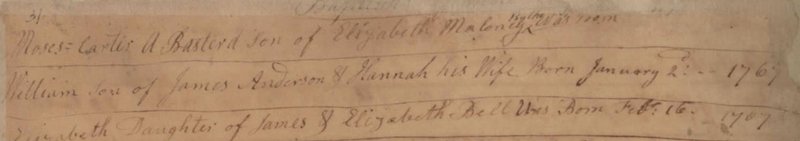 31
Moses = Carter A Basterd Son of Elizabeth Malony
William Son of James Anderson & Hannah his Wife Born January 2d: -- 1767
Elizabeth Daughter of James & Elizabeth Bell Was Born Feb: 16 - 1767